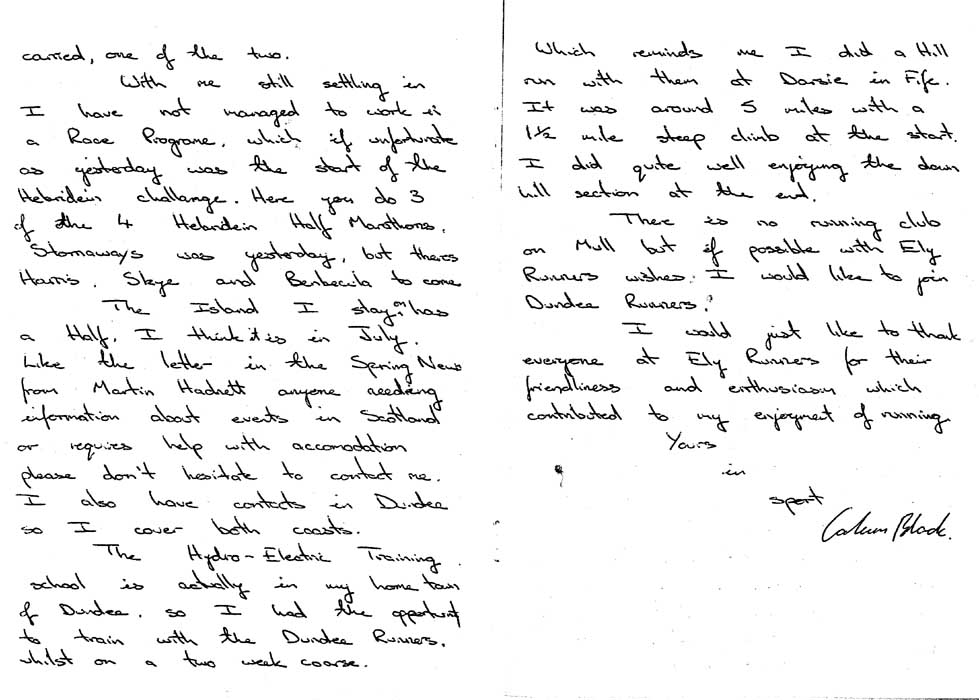 carried, one of the two.
With me still settling in
I have not managed to work in
a Race Programe, which if unfortunate
as yesterday was the start of the
Hebridein challange. Here you do 3
of the 4 Hebridein Half Marathons.
Stornaways was yesterday, but theres
Harris, Skye and Benbecula to come
The Island I stay on has
a Half, I think it is in July.
Like the letter in the Spring News
from Martin Hadnett anyone needing
information about events in Scotland
or requires help with accomodation
please don't hesitate to contact me.
I also have contacts in Dundee
so I cover both coasts.
The Hydro-Electric Training
school is actually in my home town
of Dundee, so I had the opportunity
to train with the Dundee Runners,
whilst on a two week coarse.
Which reminds me I did a Hill
run with them at Darsie in Fife.
It was around 5 miles with a
1½ mile steep climb at the start.
I did quite well enjoying the down
hill section at the end.
There is no running club
on Mull but if possible with Ely
Runners wishes. I would like to join
Dundee Runners?
I would just like to thank
everyone at Ely Runners for their
friendliness and enthusiasm which
contributed to my enjoyment of running
Yours
in
sport
Calum Black.